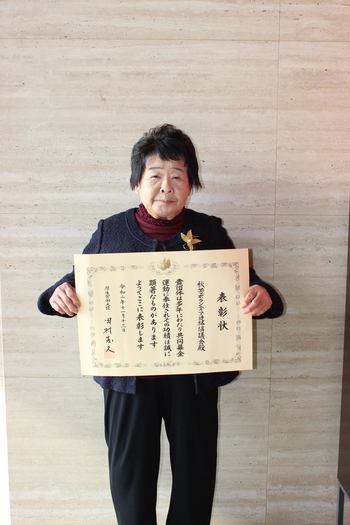 表彰状
秋芳ボランティア連絡協議会殿
貴団体は多年にわたり共同募金
運動に奉仕されその功績は誠に
顕著なものがあります
よってここに表彰します
令和二年十一月十三日
厚生労働大臣
田村憲久